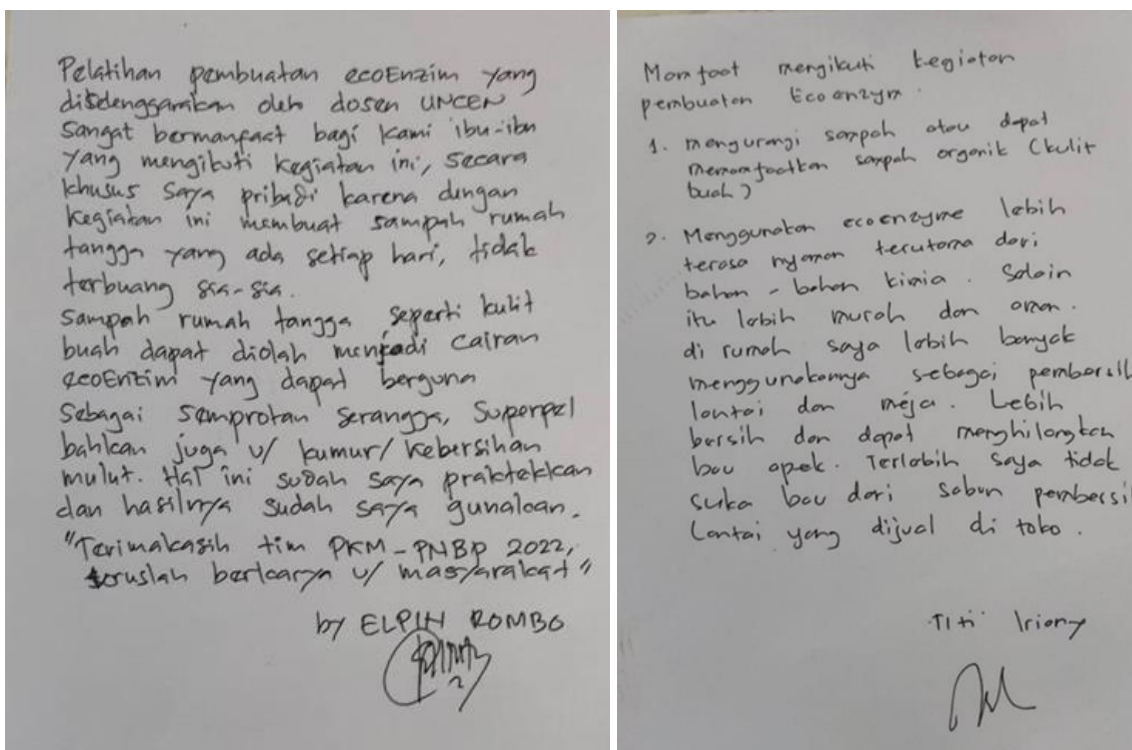 Pelatihan pembuatan ecoEnzim yang
diselenggarakan oleh dosen UNCEN
Sangat bermanfaat bagi kami ibu-ibu
yang mengikuti kegiatan ini, secara
khusus saya pribadi karena dengan
kegiatan ini membuat sampah rumah
tangga yang ada setiap hari, tidak
terbuang sia-sia.
Sampah rumah tangga seperti kulit
buah dapat diolah menjadi cairan
ecoEnzim yang dapat berguna
Sebagai semprotan serangga, Superpel
bahkan juga u/ kumur/kebersihan
mulut. Hal ini sudah saya praktekkan
dan hasilnya sudah saya gunakan.
"Terimakasih tim PKM-PNBP 2022,
teruslah berkarya u/ masyarakat"
by ELPIN ROMBO
Manfaat mengikuti kegiatan
pembuatan Ecoenzym.
1. mengurangi sampah atau dapat
memanfaatkan sampah organik (kulit
buah)
2. Menggunakan ecoenzyme lebih
terasa nyaman terutama dari
bahan-bahan kimia. Selain
itu lebih murah dan aman.
di rumah saya lebih banyak
menggunakannya sebagai pembersih
lantai dan meja. Lebih
bersih dan dapat menghilangkan
bau apek. Terlebih saya tidak
suka bau dari sabun pembersi
Lantai yang dijual di toko.
Titi Iriany